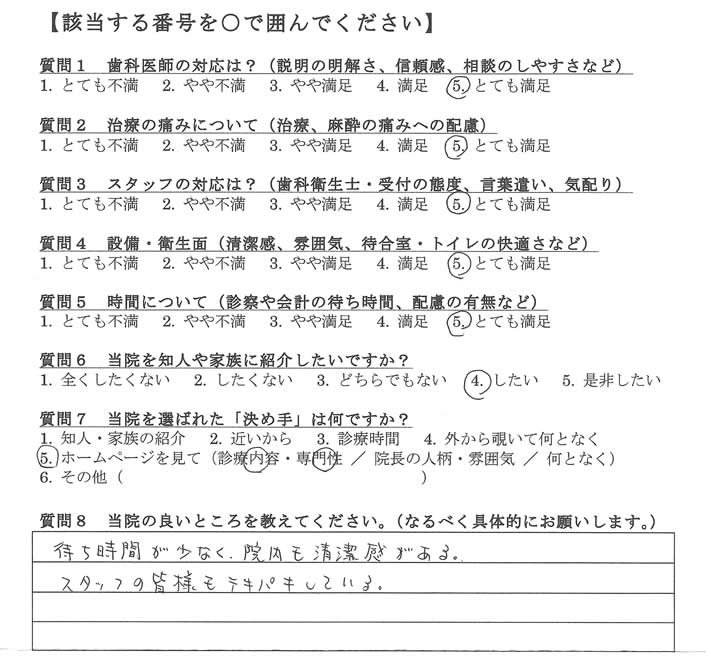 【該当する番号を○で囲んでください】
質問１　歯科医師の対応は？（説明の明解さ、信頼感、相談のしやすさなど）
1. とても不満　2. やや不満　3. やや満足　4. 満足　5. とても満足
質問２　治療の痛みについて（治療、麻酔の痛みへの配慮）
1. とても不満　2. やや不満　3. やや満足　4. 満足　5. とても満足
質問３　スタッフの対応は？（歯科衛生士・受付の態度、言葉遣い、気配り）
1. とても不満　2. やや不満　3. やや満足　4. 満足　5. とても満足
質問４　設備・衛生面（清潔感、雰囲気、待合室・トイレの快適さなど）
1. とても不満　2. やや不満　3. やや満足　4. 満足　5. とても満足
質問５　時間について（診察や会計の待ち時間、配慮の有無など）
1. とても不満　2. やや不満　3. やや満足　4. 満足　5. とても満足
質問６　当院を知人や家族に紹介したいですか？
1. 全くしたくない　2. したくない　3. どちらでもない　4. したい　5. 是非したい
質問７　当院を選ばれた「決め手」は何ですか？
1. 知人・家族の紹介　2. 近いから　3. 診療時間　4. 外から覗いて何となく
5. ホームページを見て（診療内容・専門性 ／ 院長の人柄・雰囲気 ／ 何となく）
6. その他（　　　　　　　　　　　　　　　）
質問８　当院の良いところを教えてください。（なるべく具体的にお願いします。）
待ち時間が少なく、院内も清潔感がある。
スタッフの皆様もテキパキしている。